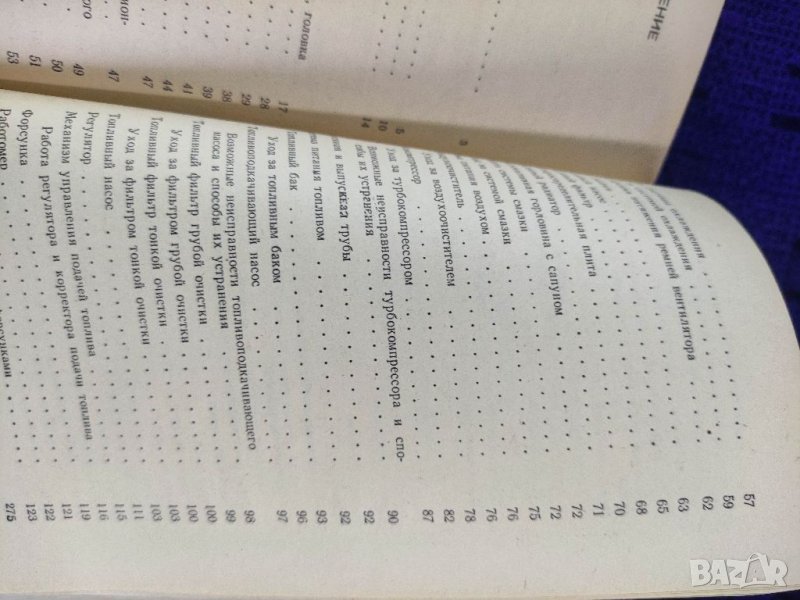 ЕНИЕ
головка
5
10
14
17
28
29
38
39
41
44
47
47
49
50
51
53
охлаждения
охлаждения
натяжения ремней вентилятора
плита
радиатор
горловина с сапуном
системы смазки
системой смазки
воздухом
Уход за воздухоочистителем
Уход за турбокомпрессором
Возможные неисправности турбокомпрессора и спо-
собы их устранения
и выпускная трубы
питания топливом
Топливный бак
Уход за топливным баком
Топливоподкачивающий насос
Возможные неисправности топливоподкачивающего
насоса и способы их устранения
Топливный фильтр грубой очистки
Уход за фильтром грубой очистки
Топливный фильтр тонкой очистки
Уход за фильтром тонкой очистки
Топливный насос
Регулятор
Механизм управления подачей топлива
Работа регулятора и корректора подачи топлива
Форсунка
57
59
62
63
65
68
70
71
72
72
75
76
76
78
82
87
90
92
92
93
96
97
98
99
100
100
103
103
111
115
116
119
121
122
123
275
BAZAR